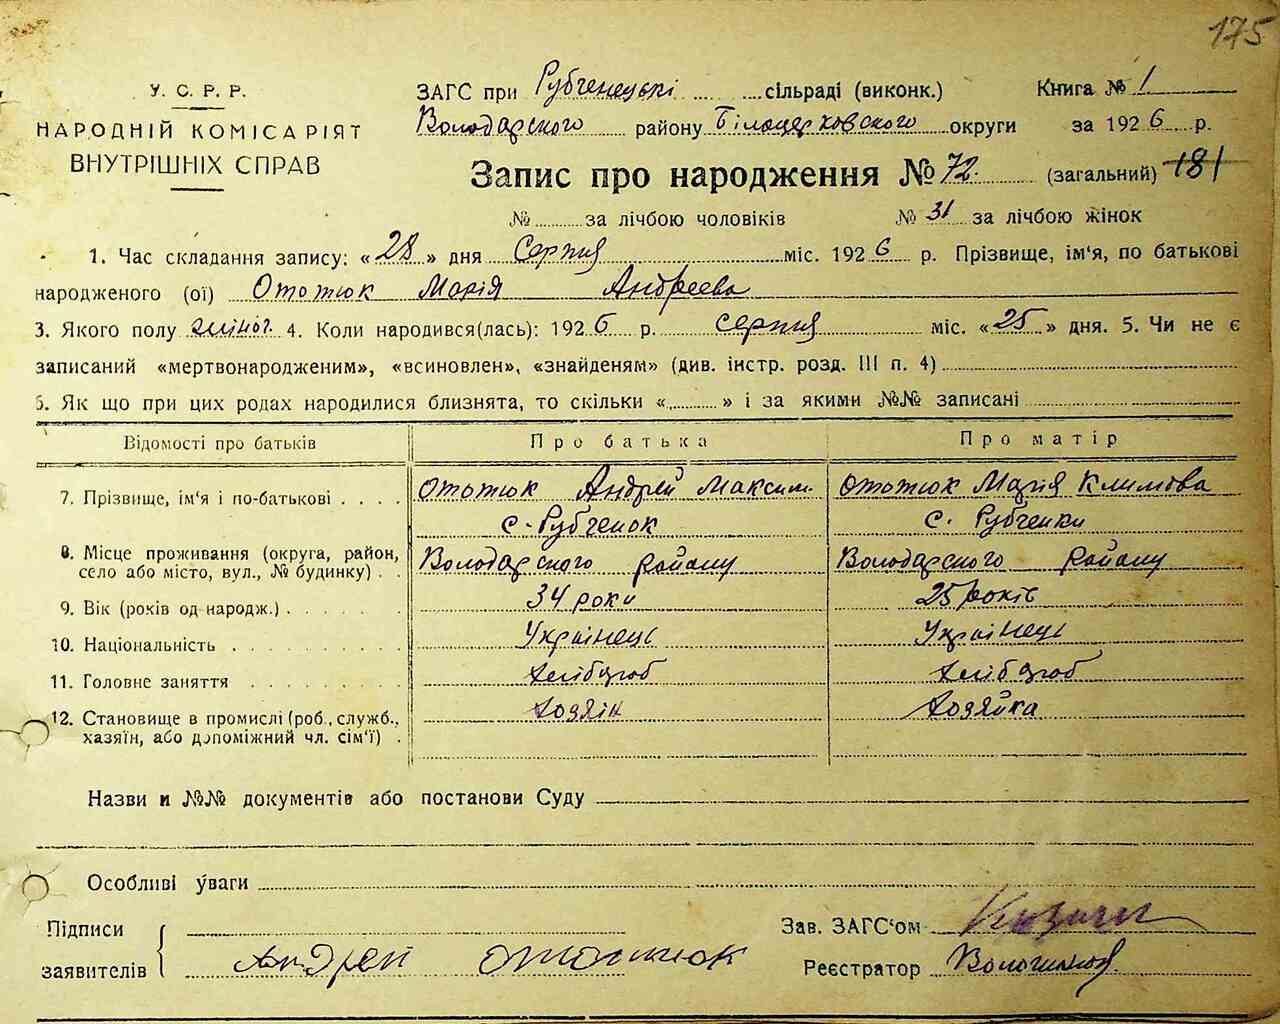 175
У. С. Р. Р.
НАРОДНІЙ КОМІСАРІЯТ
ВНУТРІШНІХ СПРАВ
ЗАГС при Рубченецькі сільраді (виконк.) Книга № 1
Володарского району Білоцерковского округи за 1926 р.
Запис про народження № 72. (загальний) 181
№ за лічбою чоловіків № 31 за лічбою жінок
1. Час складання запису: «28» дня Серпня міс. 1926 р. Прізвище, ім'я, по батькові
народженого (ої) Ототюк Марія Андреева
3. Якого полу жіноч. 4. Коли народився(лась): 1926 р. серпня міс. «25» дня. 5. Чи не є
записаний «мертвонародженим», «всиновлен», «знайденям» (див. інстр. розд. III п. 4)
6. Як що при цих родах народилися близнята, то скільки « » і за якими №№ записані
Відомості про батьків Про батька Про матір
7. Прізвище, ім'я і по-батькові Ототюк Андрей Максим. Ототюк Мария Климова
с. Рубченок с. Рубченки
8. Місце проживання (округа, район, село або місто, вул., № будинку) Володарского району Володарского району
9. Вік (років од народж.) 34 роки 25 років
10. Національність Українець Українець
11. Головне заняття Хлібороб Хлібороб
12. Становище в промислі (роб., служб., хазяїн, або допоміжний чл. сім'ї) Хозяін Хозяйка
Назви и №№ документів або постанови Суду
Особливі уваги
Підписи
заявителів Андрей Ототюк
Зав. ЗАГС'ом
Реєстратор